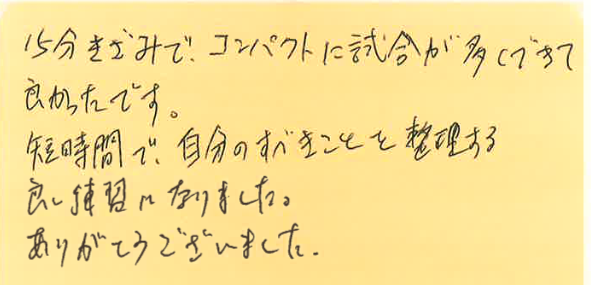 15分きざみで、コンパクトに試合が多くできて
良かったです。
短時間で、自分のすべきことを整理する
良い練習になりました。
ありがとうございました.